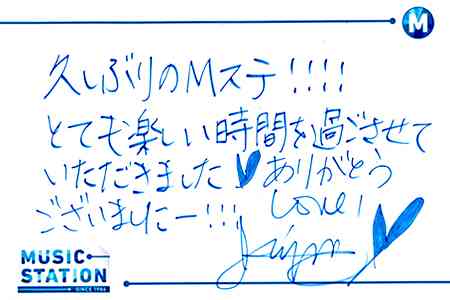 M
久しぶりのMステ!!!!
とても楽しい時間を過ごさせて
いただきました ありがとう
ございましたー!!! Love!
MUSIC
STATION
SINCE 1986